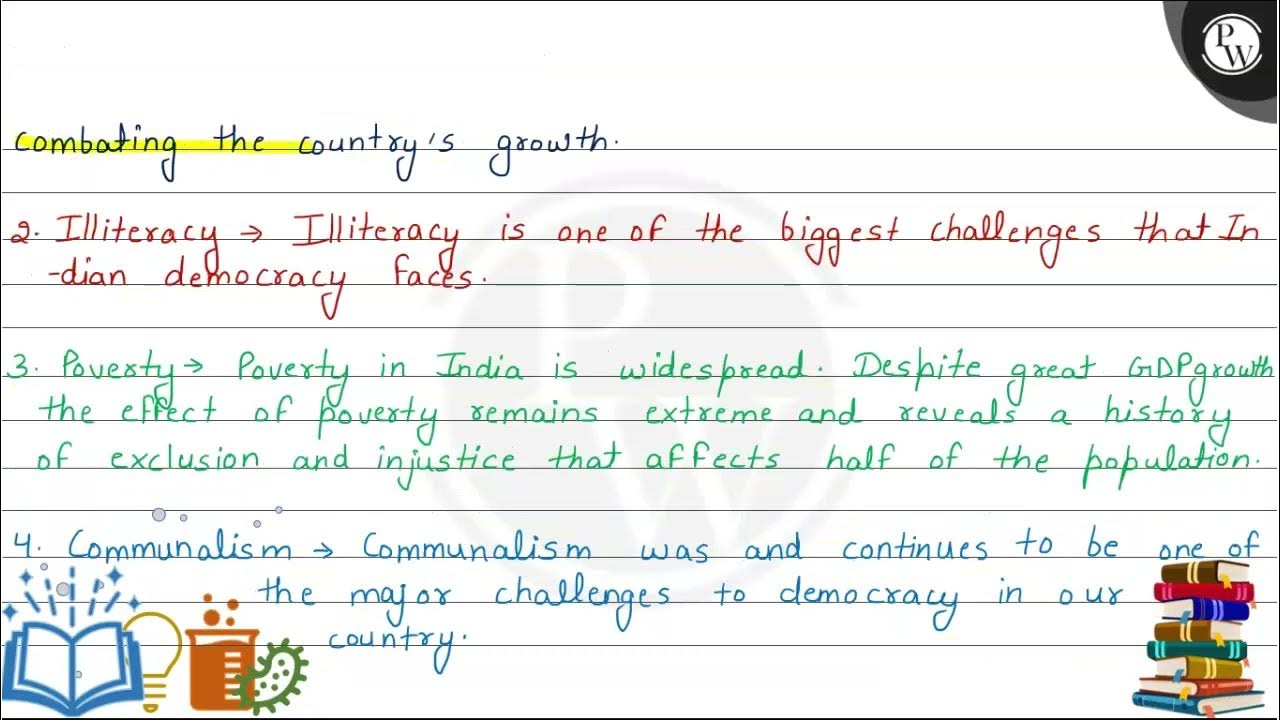 PW
combating the country's growth.
2. Illiteracy → Illiteracy is one of the biggest challenges that In
-dian democracy faces.
3. Poverty → Poverty in India is widespread. Despite great GDP growth
the effect of poverty remains extreme and reveals a history
of exclusion and injustice that affects half of the population.
4. Communalism → Communalism was and continues to be one of
the major challenges to democracy in our
country.